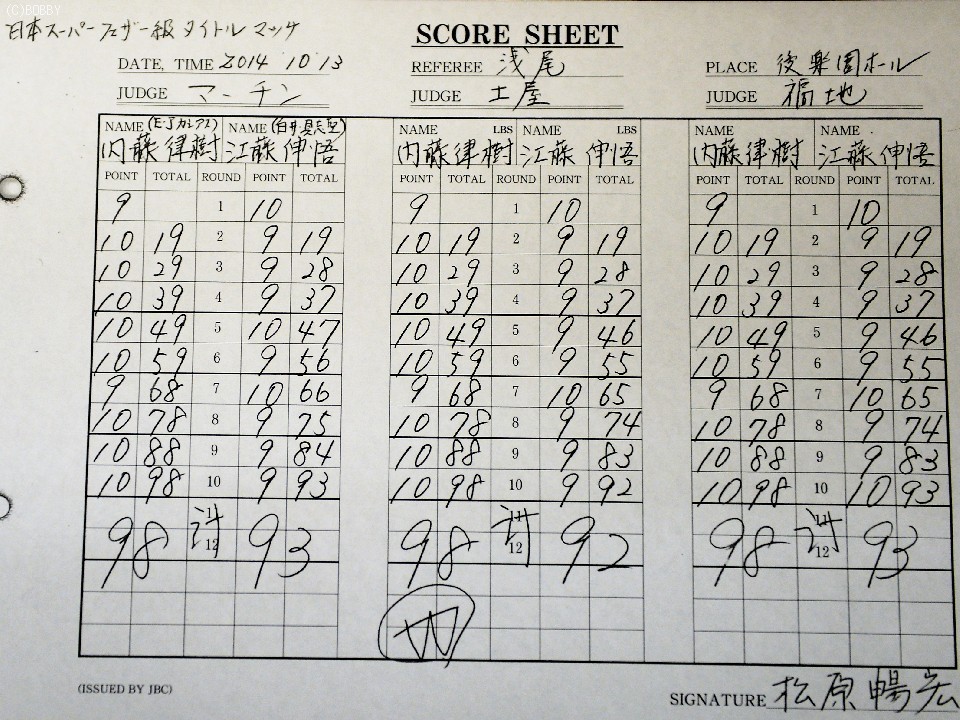 (C)BOBBY
日本スーパーフェザー級 タイトルマッチ
SCORE SHEET
DATE, TIME 2014 10 13 REFEREE 浅尾 PLACE 後楽園ホール
JUDGE マーチン JUDGE 土屋 JUDGE 福地
NAME (E・Jカシアス) NAME (白井・具志堅) NAME LBS NAME LBS NAME NAME
内藤律樹 江藤伸悟 内藤律樹 江藤伸悟 内藤律樹 江藤伸悟
POINT TOTAL ROUND POINT TOTAL POINT TOTAL ROUND POINT TOTAL POINT TOTAL ROUND POINT TOTAL
9 1 10 9 1 10 9 1 10
10 19 2 9 19 10 19 2 9 19 10 19 2 9 19
10 29 3 9 28 10 29 3 9 28 10 29 3 9 28
10 39 4 9 37 10 39 4 9 37 10 39 4 9 37
10 49 5 10 47 10 49 5 9 46 10 49 5 9 46
10 59 6 9 56 10 59 6 9 55 10 59 6 9 55
9 68 7 10 66 9 68 7 10 65 9 68 7 10 65
10 78 8 9 75 10 78 8 9 74 10 78 8 9 74
10 88 9 9 84 10 88 9 9 83 10 88 9 9 83
10 98 10 9 93 10 98 10 9 92 10 98 10 10 93
11 11 11
98 計 93 98 計 92 98 計 93
12 12 12
W
(ISSUED BY JBC)
SIGNATURE 松原暢宏